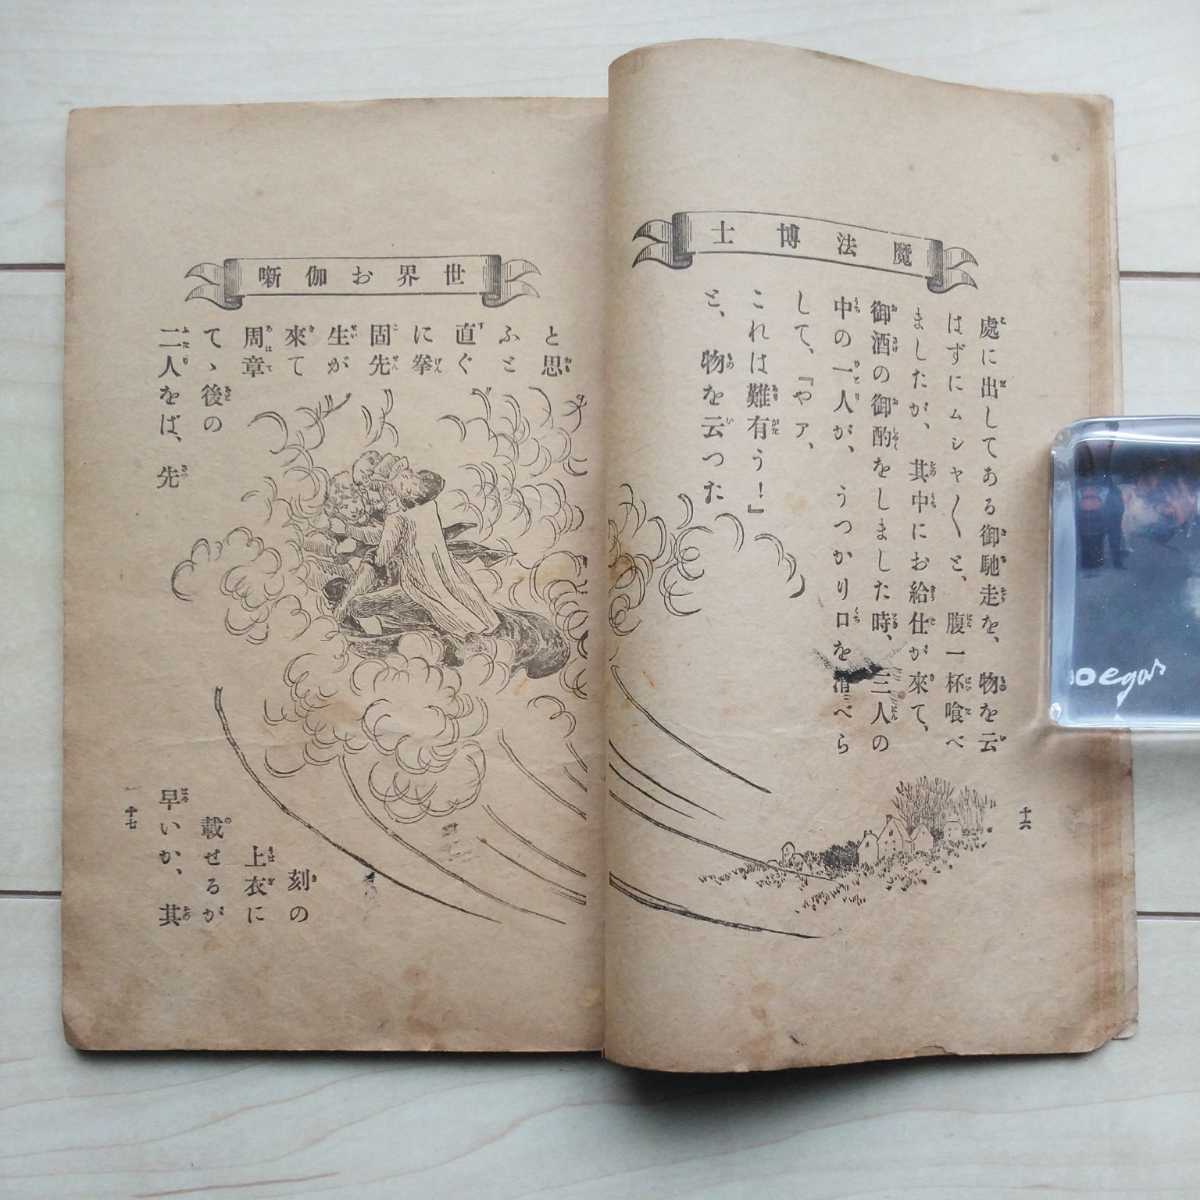 魔法博士
處に出してある御馳走を、物を云
はずにムシャ〱と、腹一杯喰べ
ましたが、其中にお給仕が來て、
御酒の御酌をしました時、三人の
中の一人が、うつかり口を滑べら
して、『やア、
これは難有う！』
と、物を云つた
十六
世界お伽噺
と思
ふと
直ぐ
に拳
固先
生が
來て
周章
てゝ後の
二人をば、先
刻の
上衣に
載せるが
早いか、其
十七
oegas